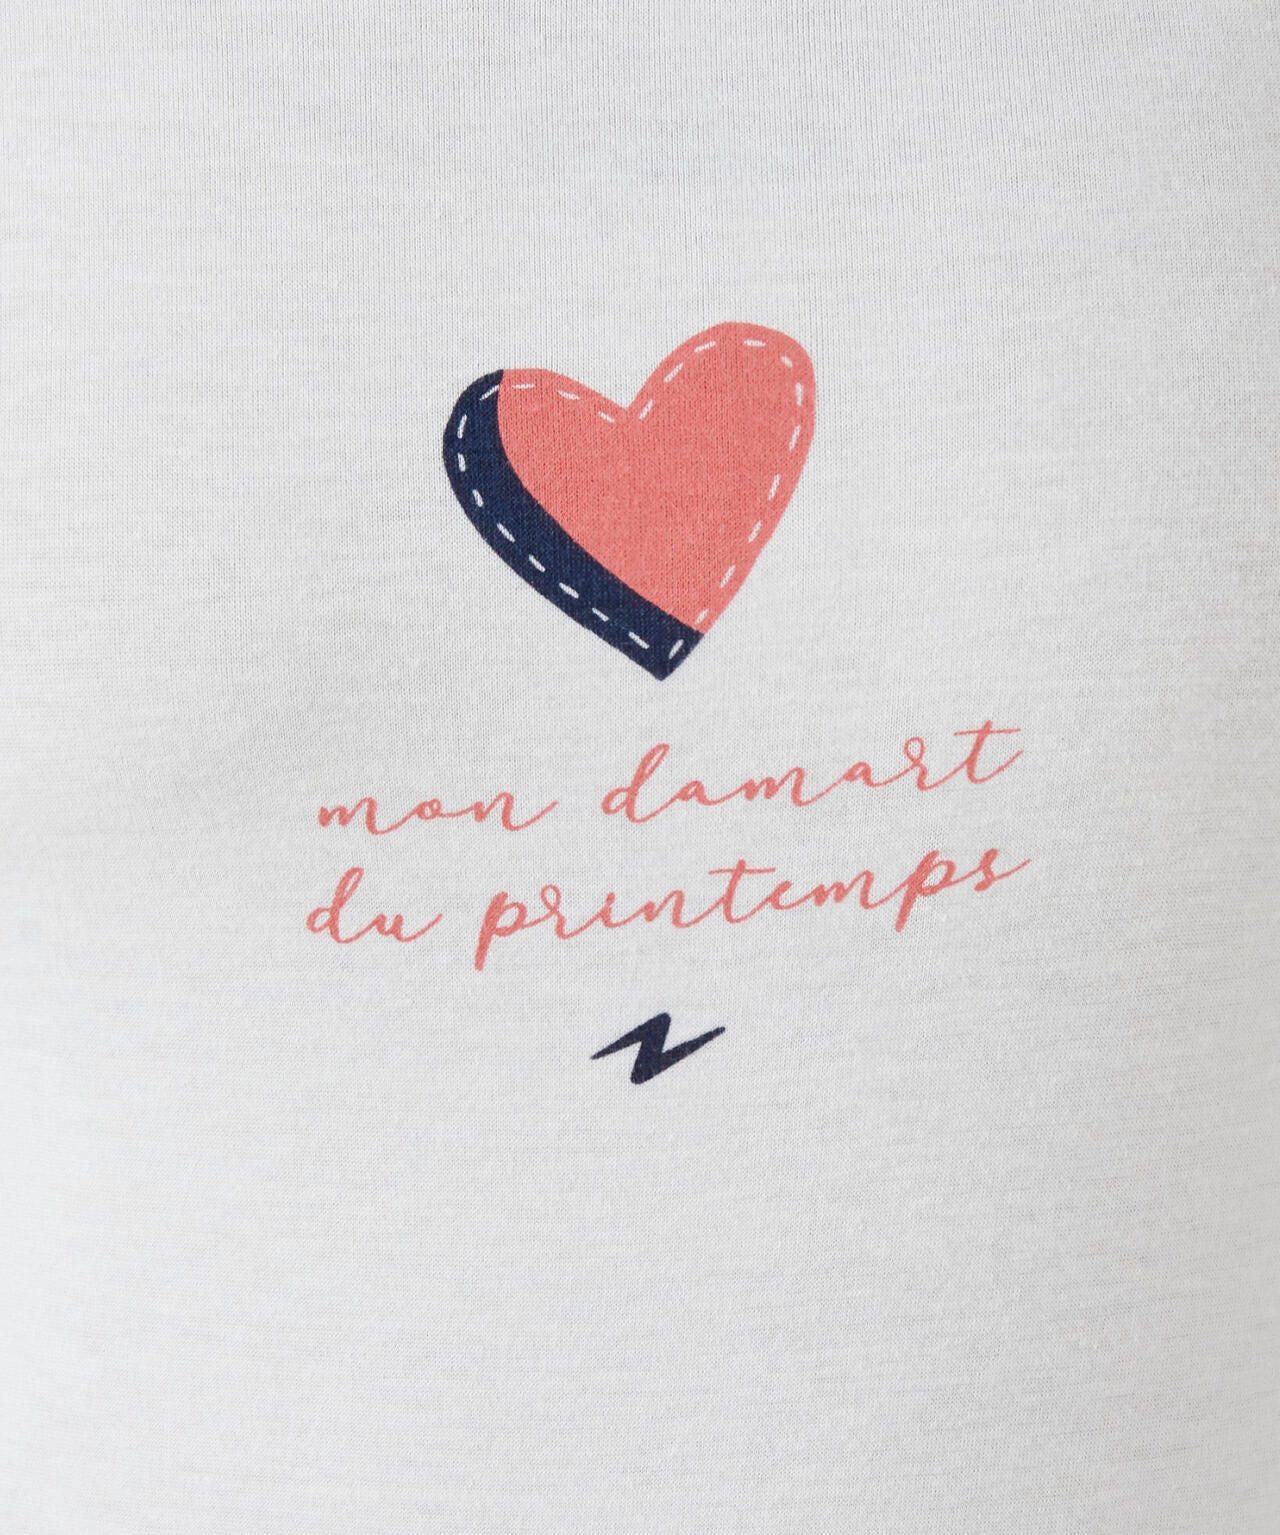 mon damart
du printemps